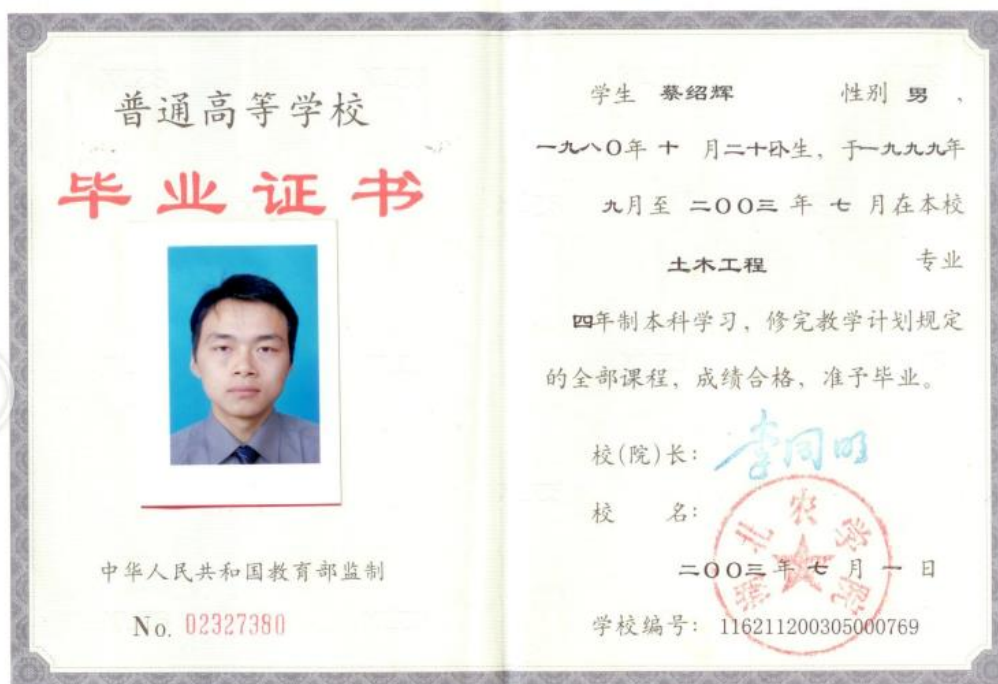 普通高等学校
毕业证书
中华人民共和国教育部监制
No. 02327380
学生 蔡绍辉 性别 男，
一九八〇年 十 月二十 生，于一九九九年
九月至 二〇〇三 年 七 月在本校
土木工程 专业
四年制本科学习，修完教学计划规定
的全部课程，成绩合格，准予毕业。
校(院)长：李同明
校 名：
北农学院
二〇〇三年 七 月 一 日
学校编号：116211200305000769